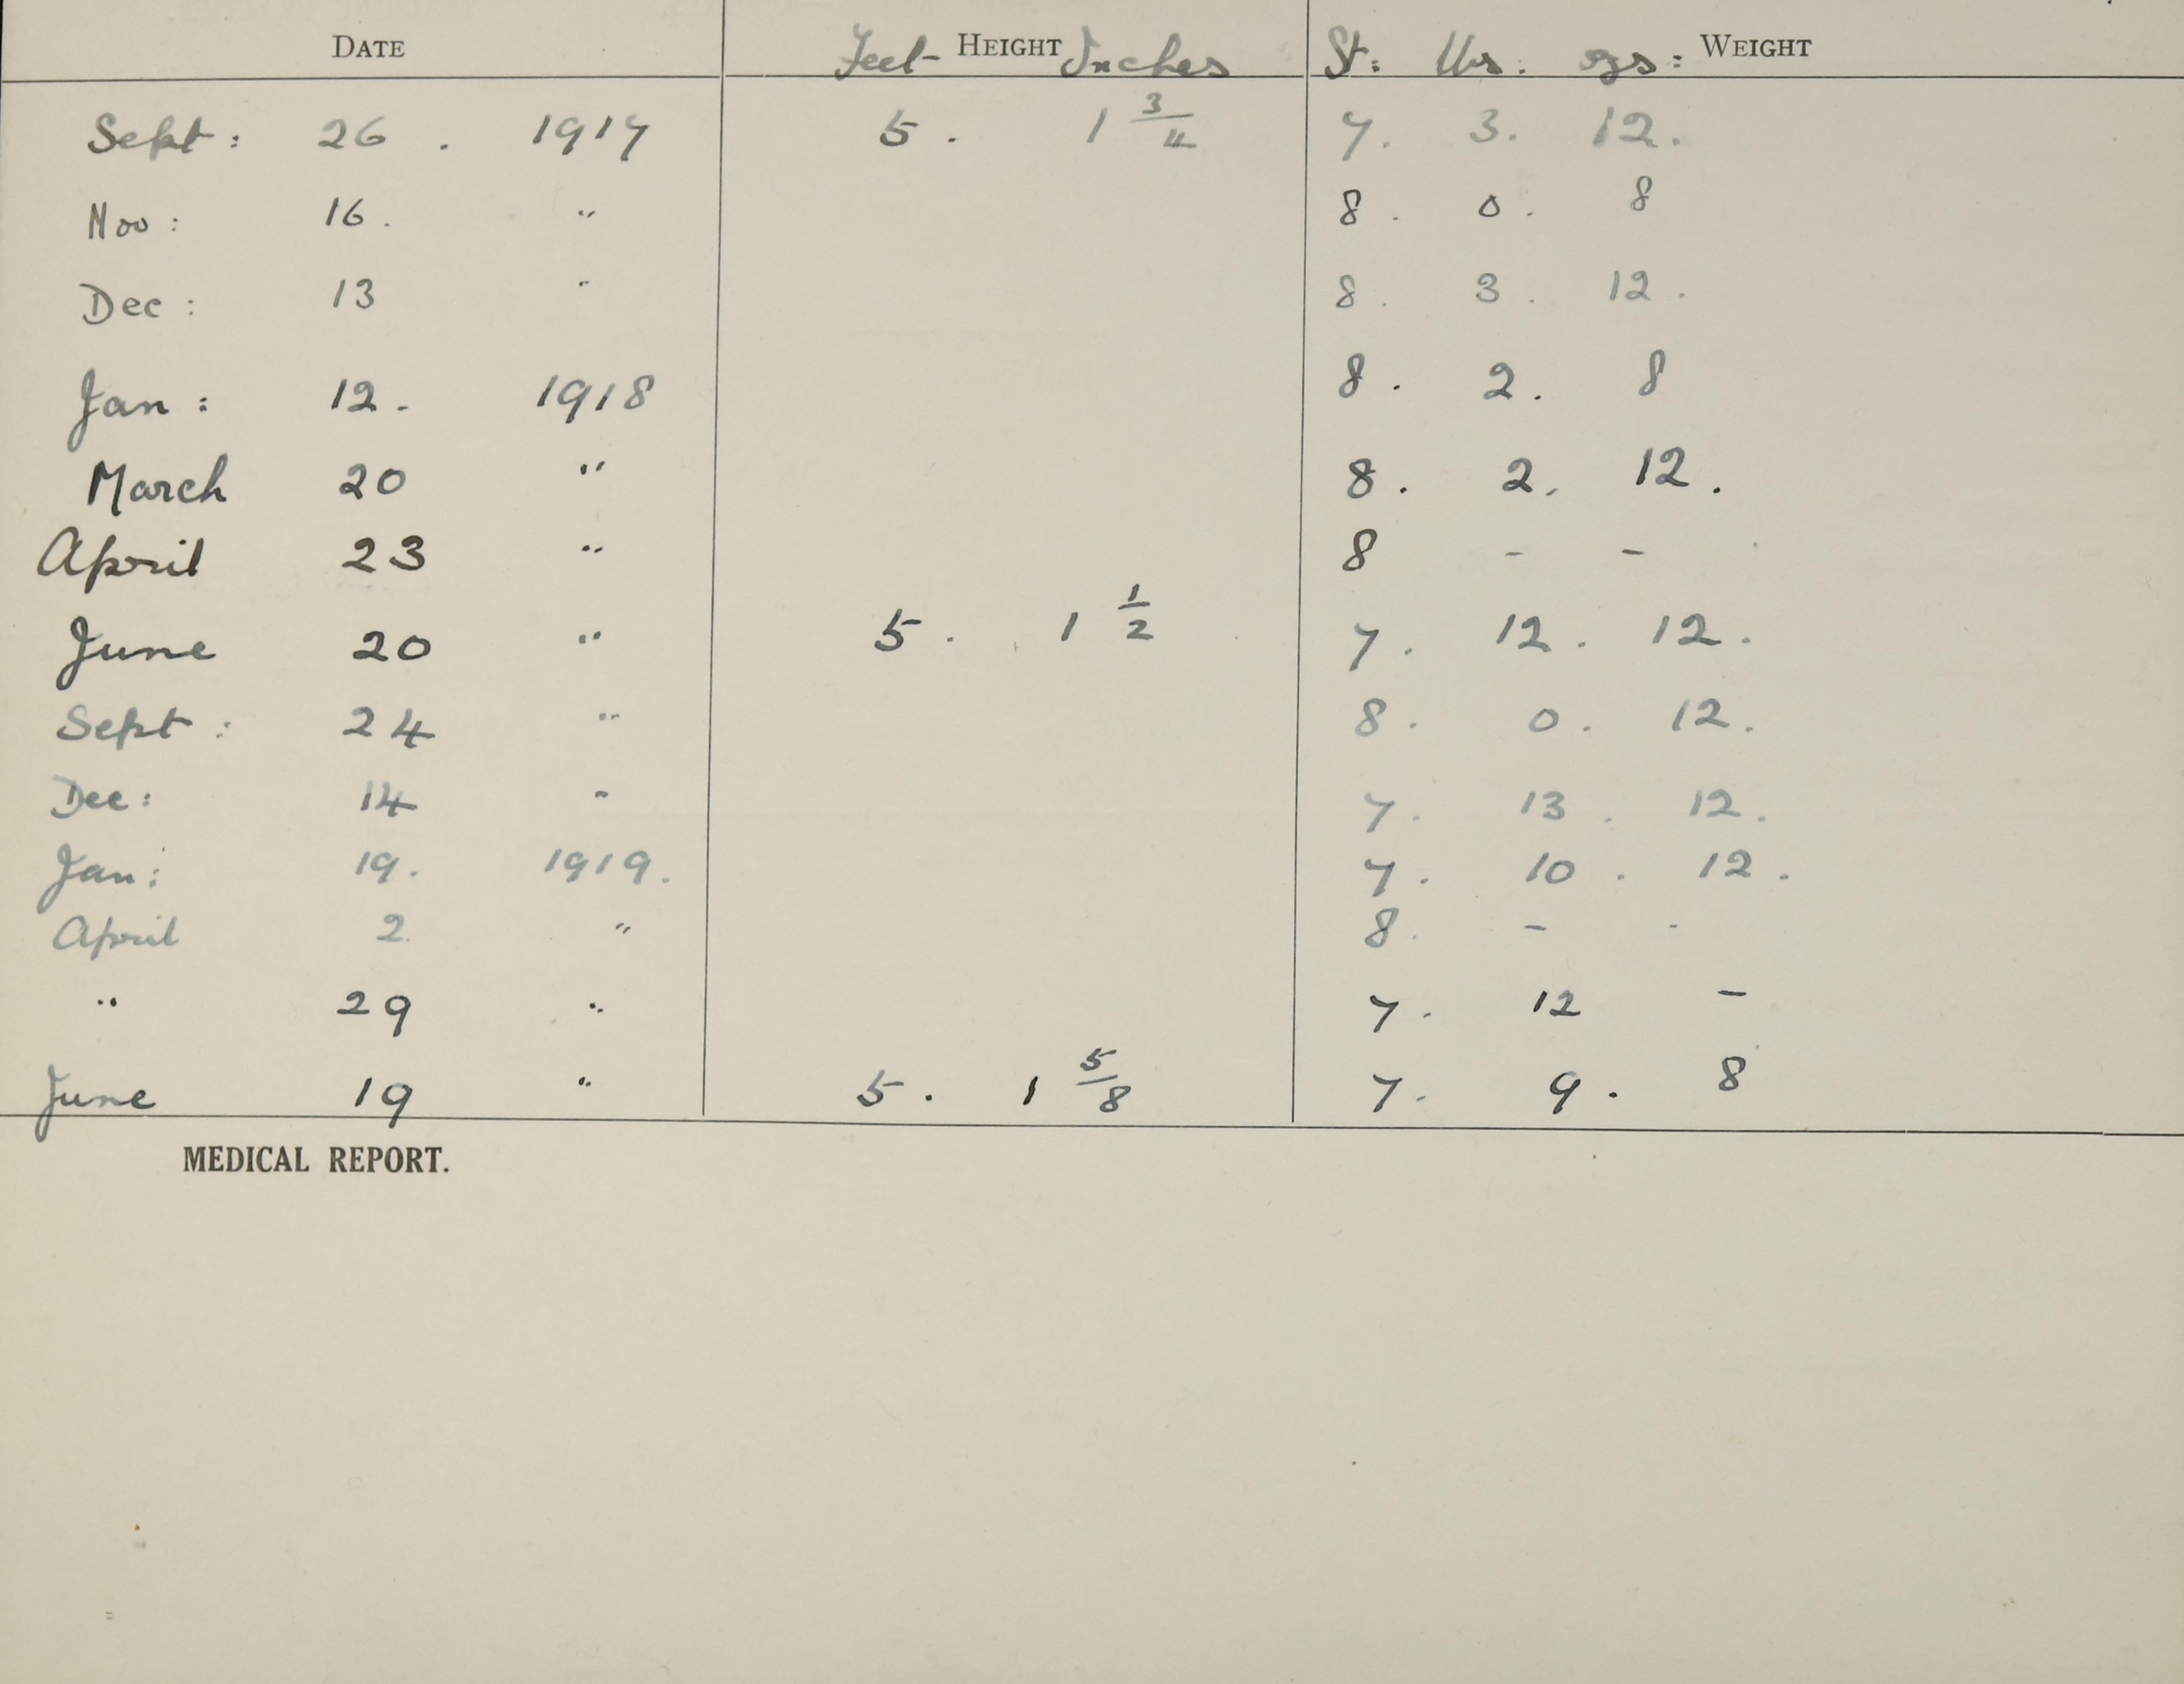 DATE Feet HEIGHT Inches St: lbs. ozs: WEIGHT
Sept: 26. 1917 5. 1 3/4 7. 3. 12.
Nov: 16. " 8. 0. 8
Dec: 13 " 8. 3. 12.
Jan: 12. 1918 8. 2. 8
March 20 " 8. 2. 12.
April 23 " 8 - -
June 20 " 5. 1 1/2 7. 12. 12.
Sept: 24 " 8. 0. 12.
Dec: 14 " 7. 13. 12.
Jan: 19. 1919. 7. 10. 12.
April 2. " 8. - -
" 29 " 7. 12 -
June 19 " 5. 1 5/8 7. 9. 8
MEDICAL REPORT.